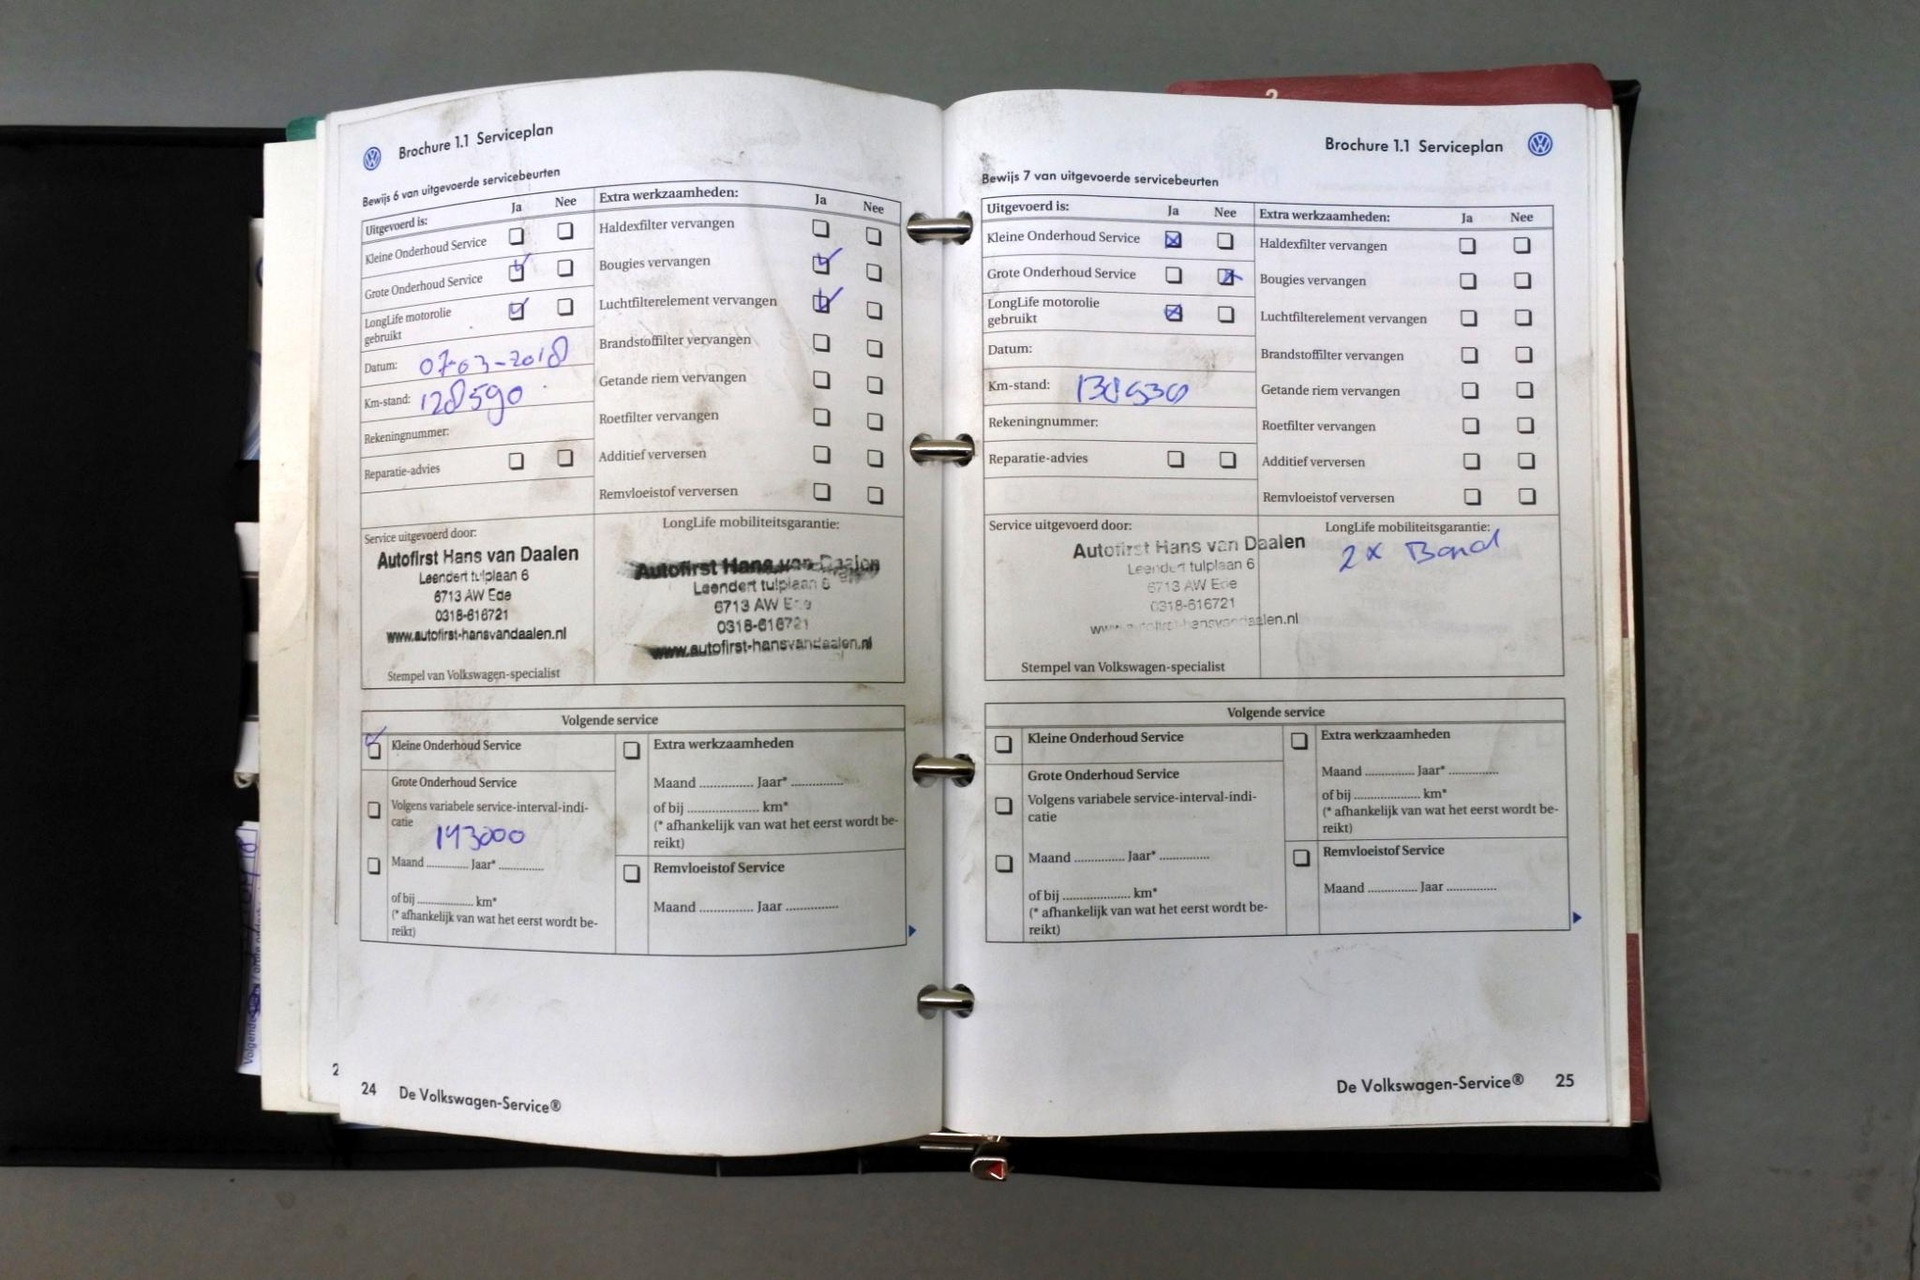 Brochure 1.1 Serviceplan
Bewijs 6 van uitgevoerde servicebeurten
Uitgevoerd is: Ja Nee
Kleine Onderhoud Service
Grote Onderhoud Service
LongLife motorolie
gebruikt
Datum: 07-03-2018
Km-stand: 128590
Rekeningnummer:
Reparatie-advies
Extra werkzaamheden: Ja Nee
Haldexfilter vervangen
Bougies vervangen
Luchtfilterelement vervangen
Brandstoffilter vervangen
Getande riem vervangen
Roetfilter vervangen
Additief verversen
Remvloeistof verversen
Service uitgevoerd door:
Autofirst Hans van Daalen
Leendert tulplaan 6
6713 AW Ede
0318-616721
www.autofirst-hansvandaalen.nl
Stempel van Volkswagen-specialist
LongLife mobiliteitsgarantie:
Autofirst Hans van Daalen
Leendert tulplaan 6
6713 AW Ede
0318-616721
www.autofirst-hansvandaalen.nl
Volgende service
Kleine Onderhoud Service
Grote Onderhoud Service
Volgens variabele service-interval-indi-
catie
143000
Maand ............. Jaar* .............
of bij ................ km*
(* afhankelijk van wat het eerst wordt be-
reikt)
Extra werkzaamheden
Maand ............... Jaar* ...............
of bij .................... km*
(* afhankelijk van wat het eerst wordt be-
reikt)
Remvloeistof Service
Maand ............... Jaar ...............
2
24 De Volkswagen-Service®
2
Brochure 1.1 Serviceplan
Bewijs 7 van uitgevoerde servicebeurten
Uitgevoerd is: Ja Nee
Kleine Onderhoud Service
Grote Onderhoud Service
LongLife motorolie
gebruikt
Datum:
Km-stand:
Rekeningnummer:
Reparatie-advies
Extra werkzaamheden: Ja Nee
Haldexfilter vervangen
Bougies vervangen
Luchtfilterelement vervangen
Brandstoffilter vervangen
Getande riem vervangen
Roetfilter vervangen
Additief verversen
Remvloeistof verversen
Service uitgevoerd door:
Autofirst Hans van Daalen
Leendert tulplaan 6
6713 AW Ede
0318-616721
www.autofirst-hansvandaalen.nl
Stempel van Volkswagen-specialist
LongLife mobiliteitsgarantie:
2 x Band
Volgende service
Kleine Onderhoud Service
Grote Onderhoud Service
Volgens variabele service-interval-indi-
catie
Maand .............. Jaar* ..............
of bij ................... km*
(* afhankelijk van wat het eerst wordt be-
reikt)
Extra werkzaamheden
Maand .............. Jaar* ..............
of bij ................... km*
(* afhankelijk van wat het eerst wordt be-
reikt)
Remvloeistof Service
Maand .............. Jaar ..............
De Volkswagen-Service® 25